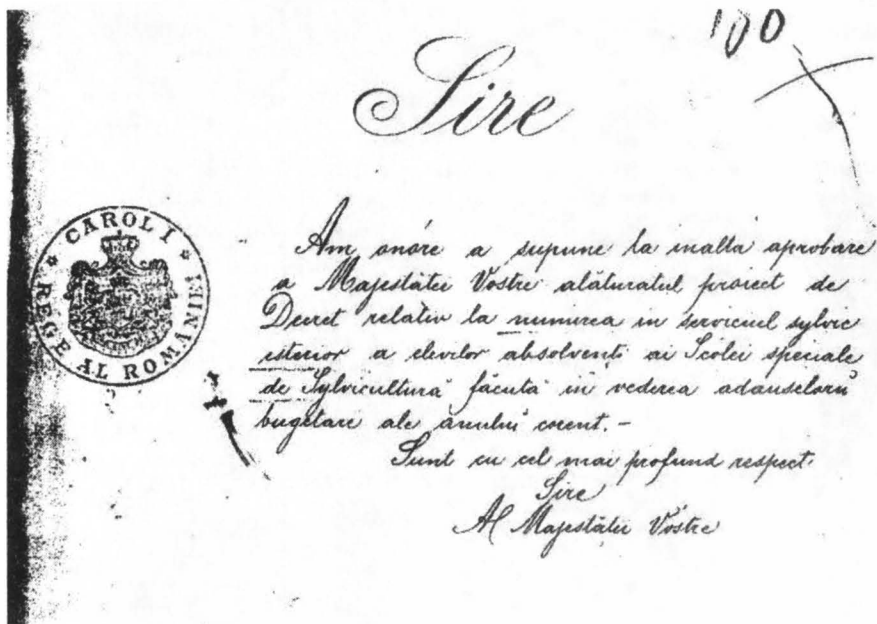 100
Sire
CAROL I
REGE AL ROMANIEI
Am onóre a supune la inalta aprobare
a Majestăței Vostre alăturatul proiect de
Decret relativ la numirea in serviciul sylvic
esterior a elevilor absolvenți ai Scolei speciale
de Sylvicultură făcută in vederea adauselorŭ
bugetare ale anului corent. –
Sunt cu cel mai profund respect.
Sire
Al Majestăței Vostre